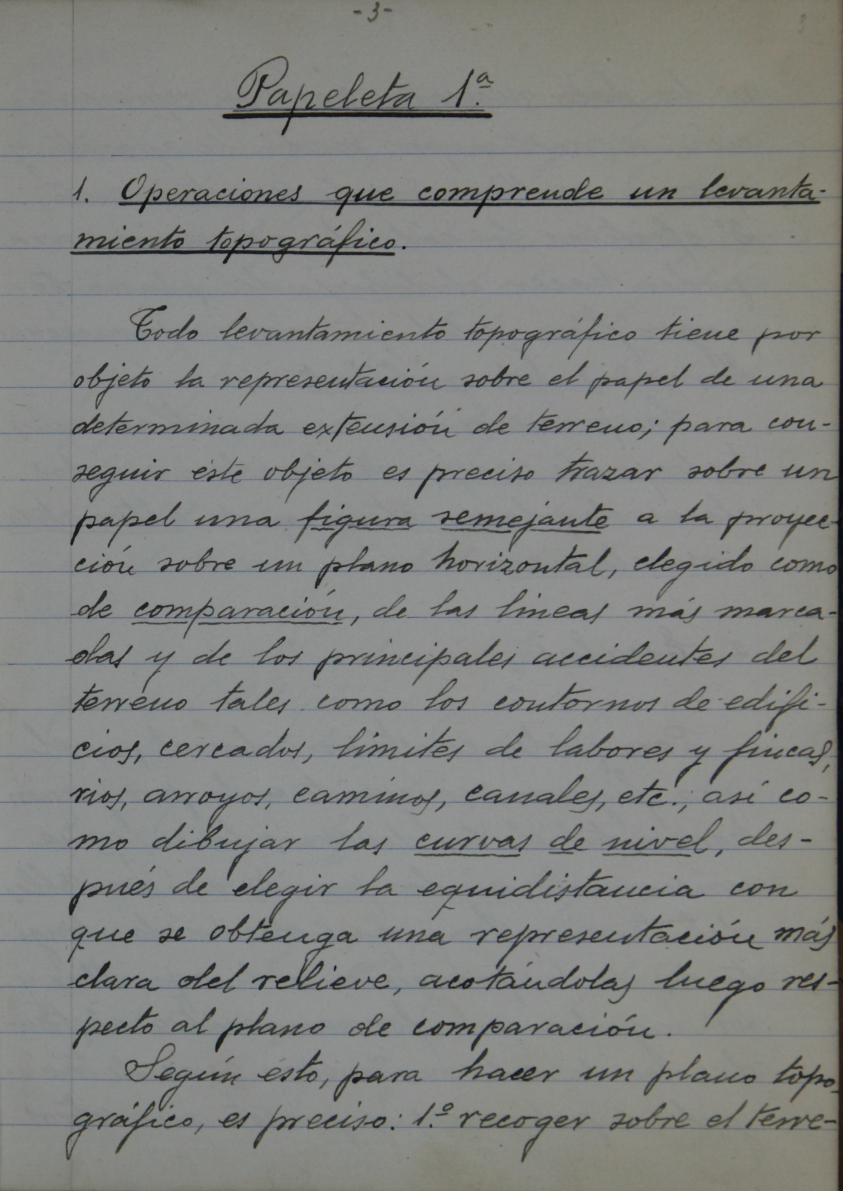 -3-
Papeleta 1.ª
1. Operaciones que comprende un levanta-
miento topográfico.
Todo levantamiento topográfico tiene por
objeto la representación sobre el papel de una
determinada extensión de terreno; para con-
seguir éste objeto es preciso trazar sobre un
papel una figura semejante a la proyec-
ción sobre un plano horizontal, elegido como
de comparación, de las lineas más marca-
das y de los principales accidentes del
terreno tales como los contornos de edifi-
cios, cercados, límites de labores y fincas,
rios, arroyos, caminos, canales, etc.; así co-
mo dibujar las curvas de nivel, des-
pués de elegir la equidistancia con
que se obtenga una representación más
clara del relieve, acotándolas luego res-
pecto al plano de comparación.
Según ésto, para hacer un plano topo-
gráfico, es preciso: 1.º recoger sobre el terre-